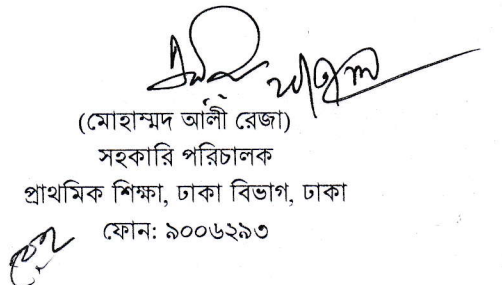 (মোহাম্মদ আলী রেজা)
সহকারি পরিচালক
প্রাথমিক শিক্ষা, ঢাকা বিভাগ, ঢাকা
ফোন: ৯০০৬২৯৩